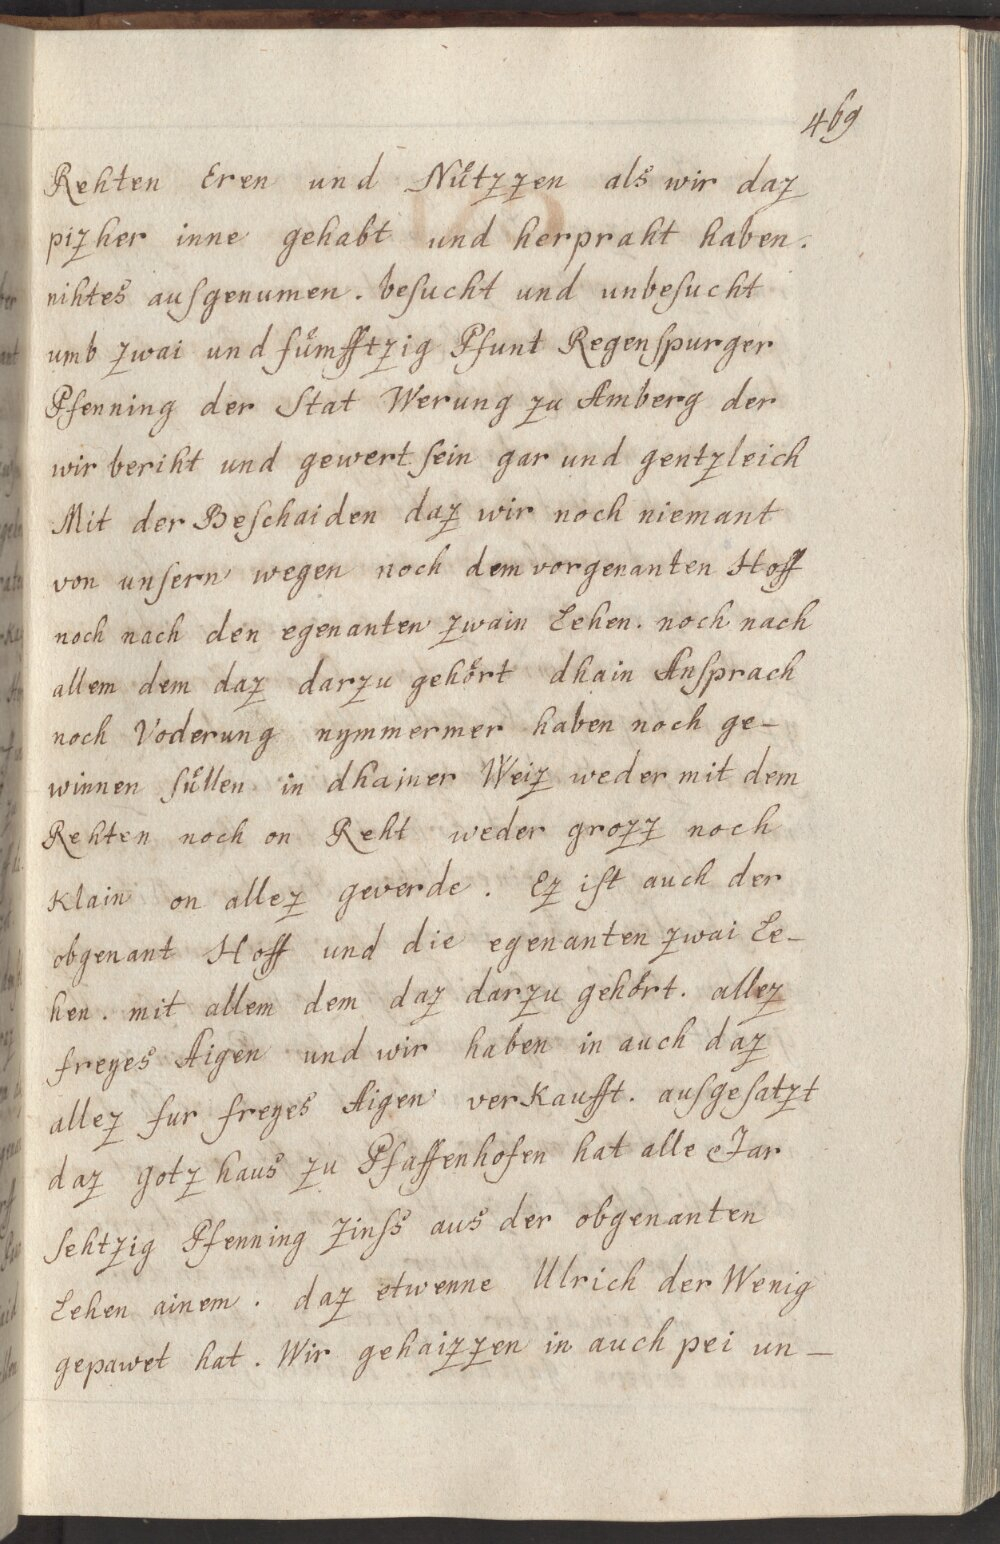 469
Rehten Eren und Nuͤtzzen als wir daz
pizher inne gehabt und herpraht haben.
nihtes ausgenumen. besucht und unbesucht
umb zwai und fuͤmfftzig Pfunt Regenspurger
Pfenning der Stat Werung zu Amberg der
wir beriht und gewert sein gar und gentzleich
Mit der Beschaiden daz wir noch niemant
von unsern wegen noch dem vorgenanten Hoff
noch nach den egenanten zwain Lehen. noch nach
allem dem daz darzu gehoͤrt dhain Ansprach
noch Voderung nymmermer haben noch ge-
winnen suͤllen in dhainer Weiz weder mit dem
Rehten noch on Reht weder grozz noch
Klain on allez geverde. Ez ist auch der
obgenant Hoff und die egenanten zwai Le-
hen. mit allem dem daz darzu gehoͤrt. allez
freyes Aigen und wir haben in auch daz
allez fur freyes Aigen verKaufft. ausgesatzt
daz gotzhaus zu Pfaffenhofen hat alle Jar
sehtzig Pfenning Zinss aus der obgenanten
Lehen ainem. daz etwenne Ulrich der Wenig
gepawet hat. Wir gehaizzen in auch pei un-